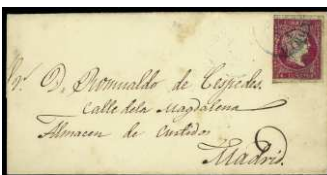 Sr. D. Romualdo de Cespedes.
Calle dela Magdalena
Almacen de Curtidos
Madrid.